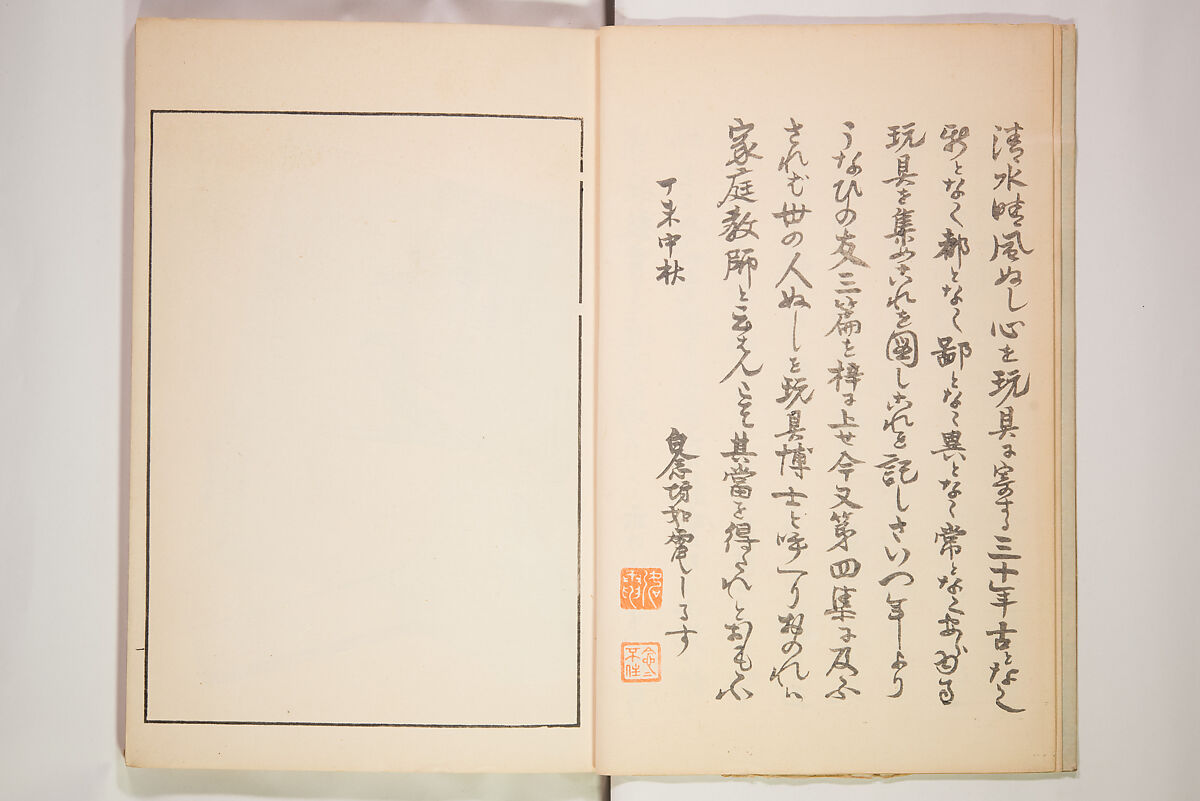 清水晴風ぬし心を玩具に寄する三十年古となく
新となく都となく鄙となく異となく常となくあらゆる
玩具を集めこれを図しこれを記しさいつ年より
うなひの友三篇を梓に上せ今又第四集に及ふ
されば世の人ぬしを玩具博士と呼へりおのれは
家庭教師と云はんこそ其當を得たれとおもふ
丁未中秋
念坊如電しるす